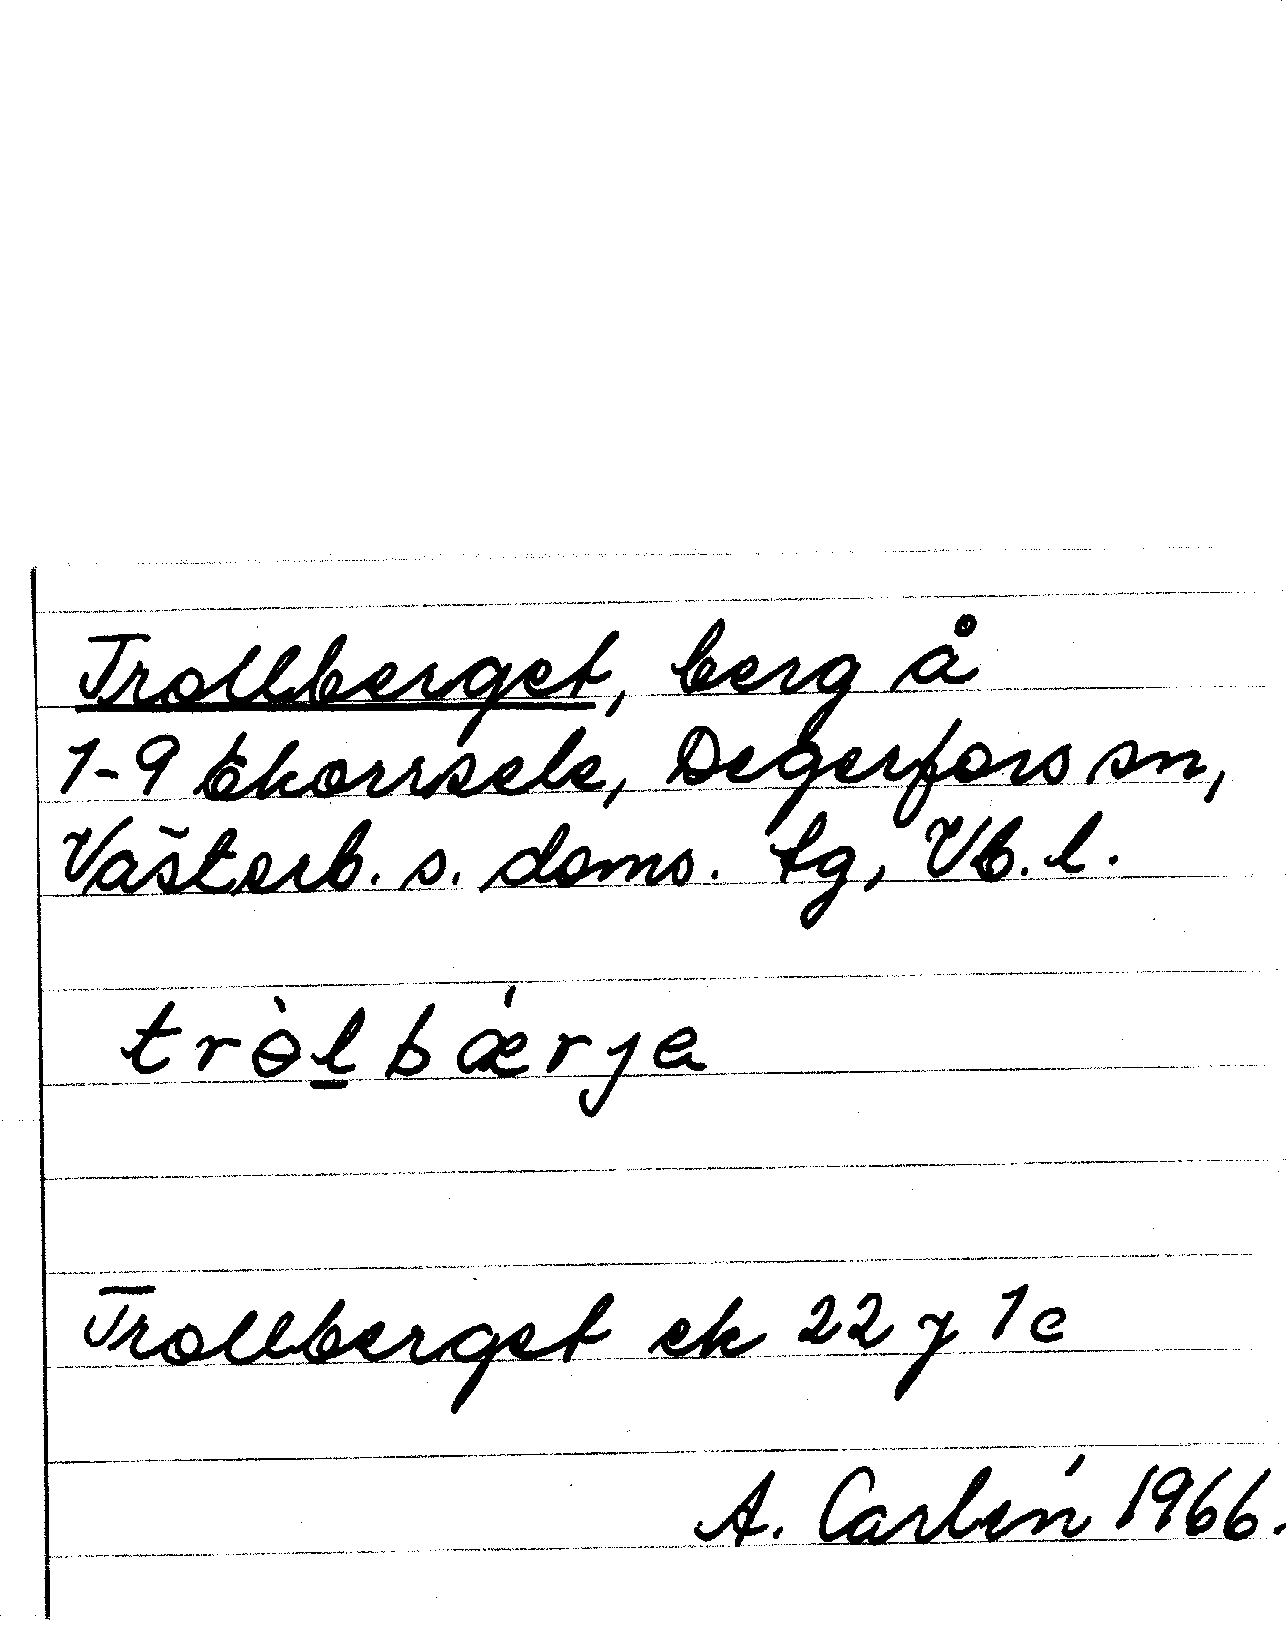 Trollberget, berg å
1-9 Ekorrsele, Degerfors sn,
Västerb. s. doms. tg, Vb. l.
trɵ̀l̲bǽrja
Trollberget ek 22 y 1 c
A. Carlén 1966.